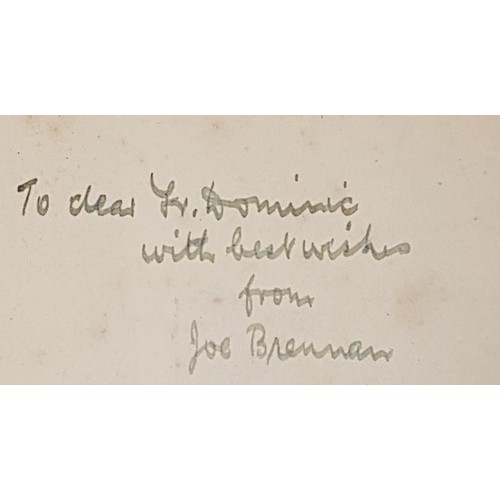 To dear Fr. Dominic
with best wishes
from
Joe Brennan